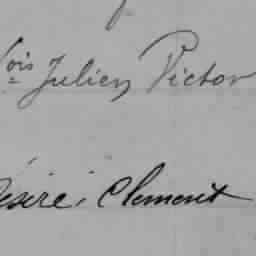 ois Julien Victor
ésiré, Clement